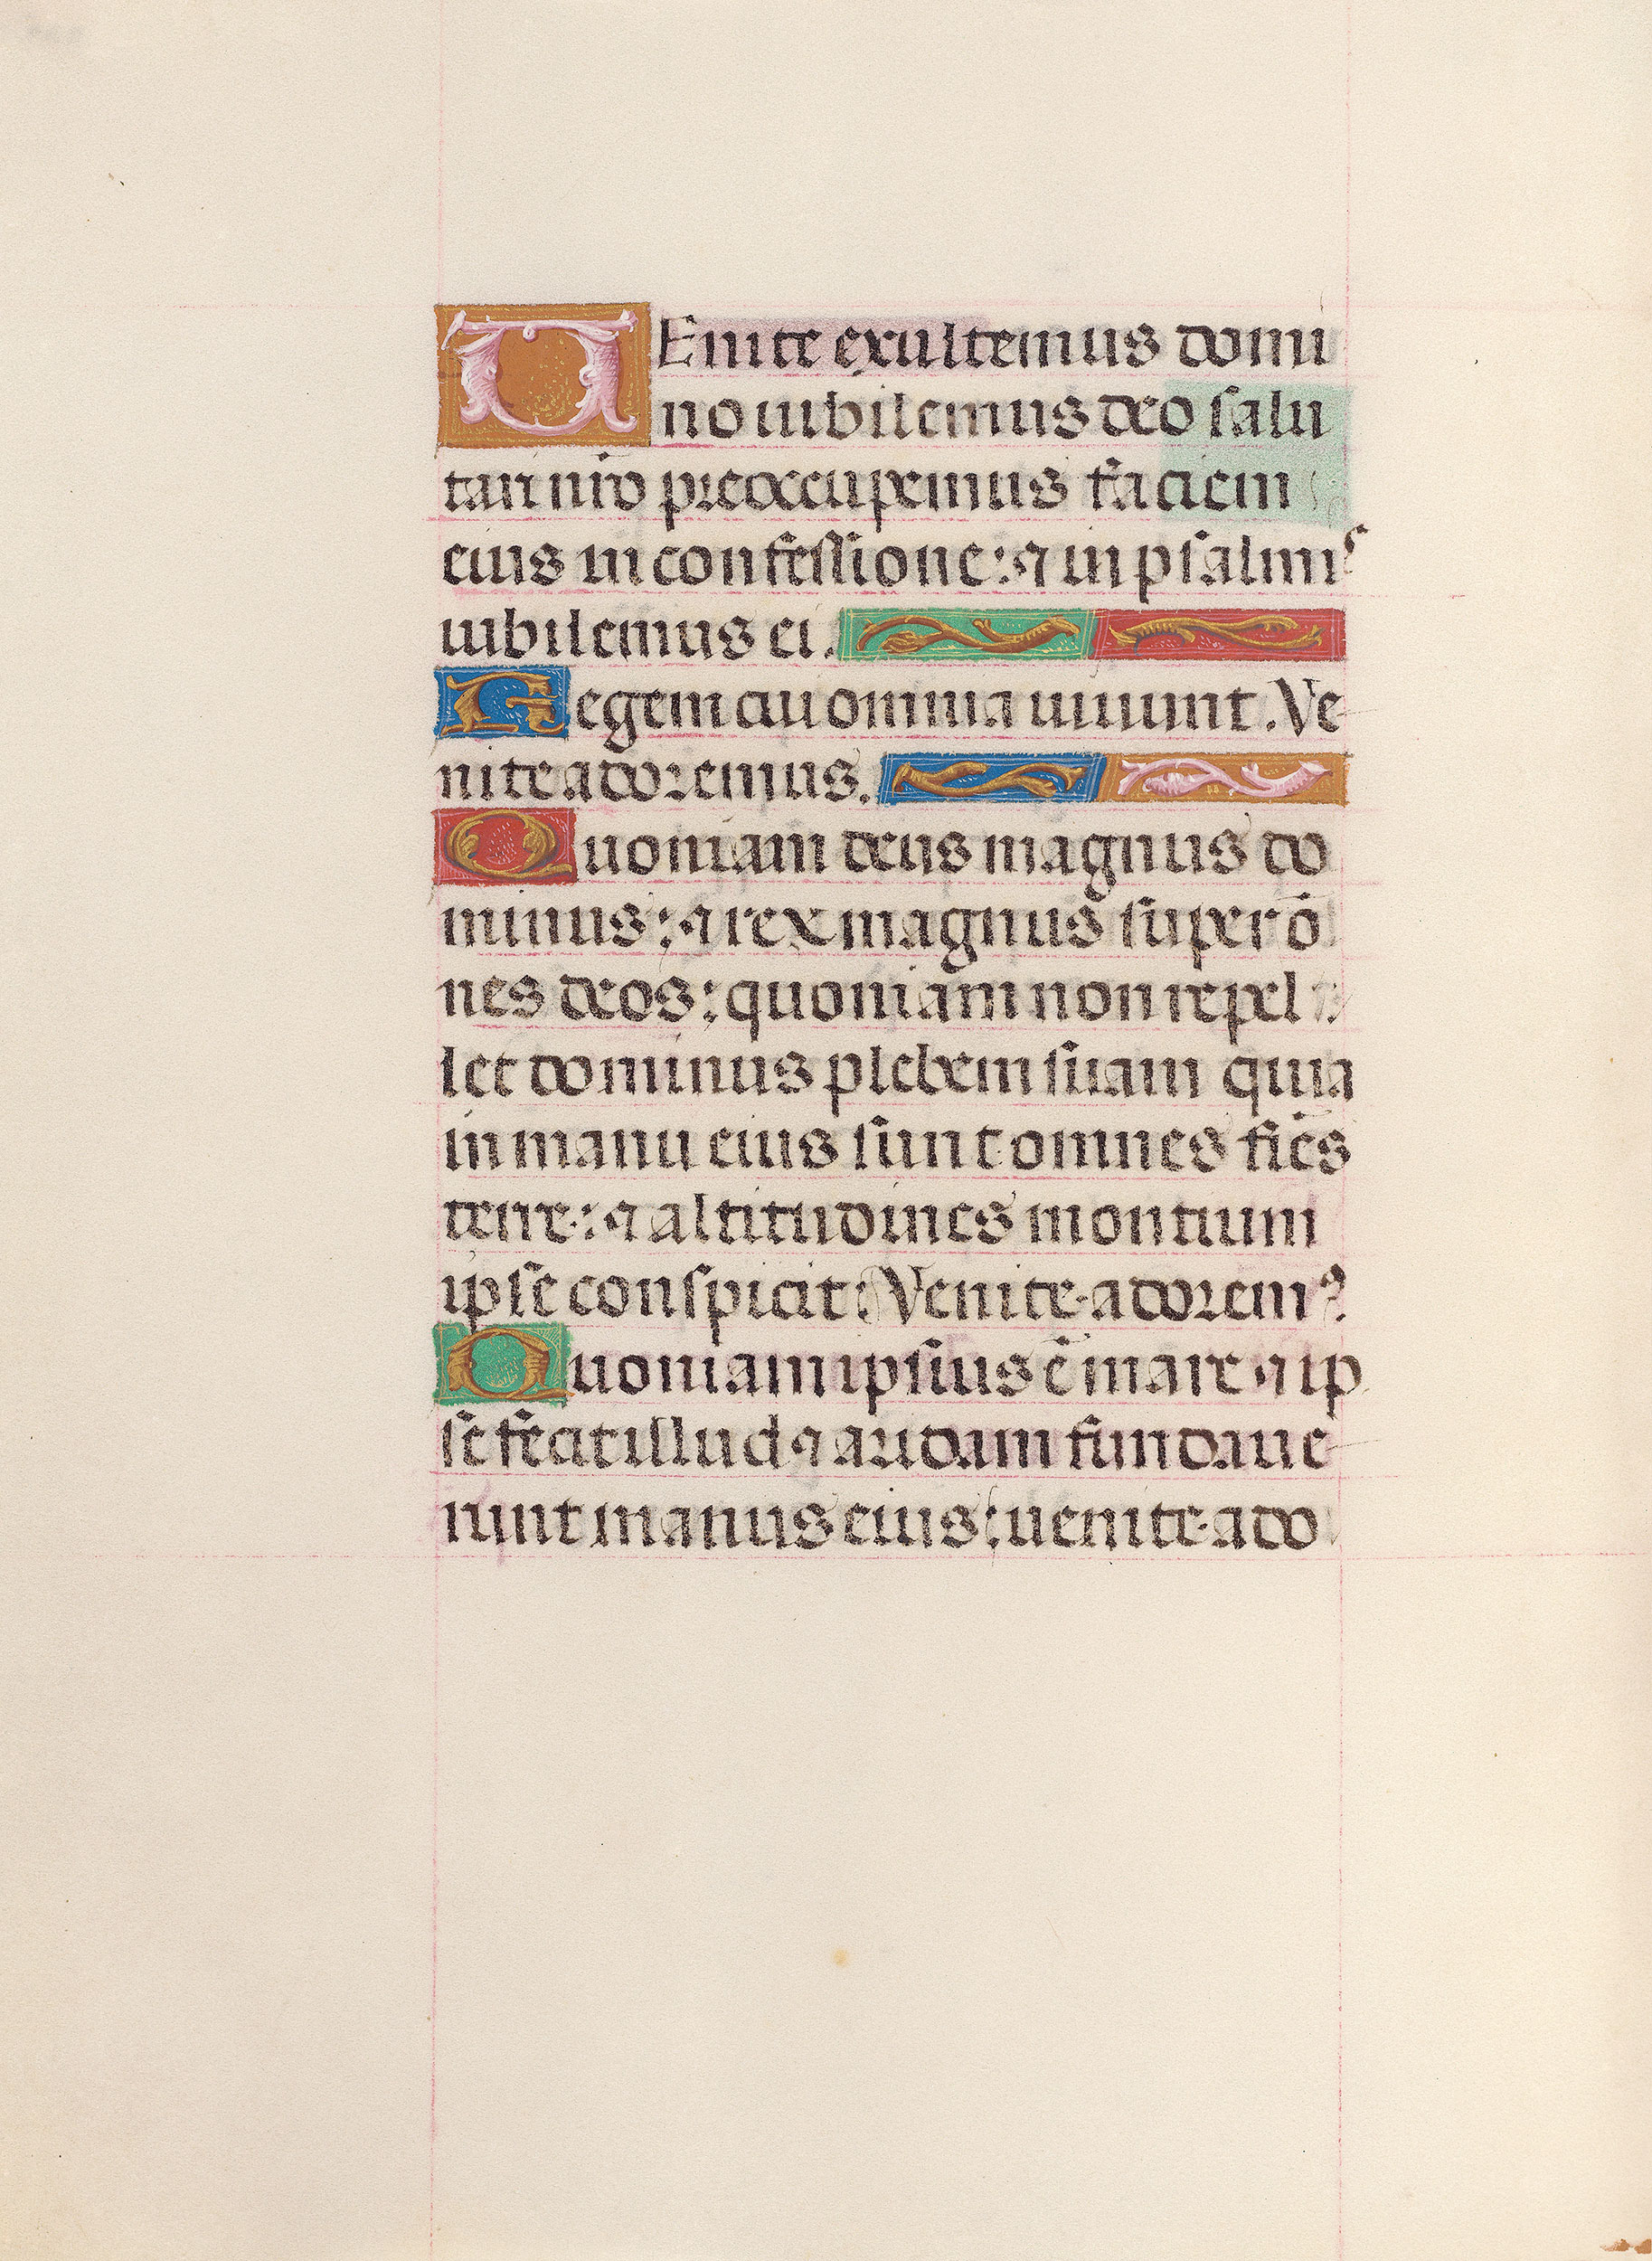 VEnite exultemus domi
no iubilemus deo salu
tari nr̄o preoccupemus faciem
eius in confessione: ⁊ in psalmis
iubilemus ei.
Regem cui omnia uiuunt. Ve
nite adoremus.
Quoniam deus magnus do
minus: ⁊ rex magnus super ō
nes deos: quoniam non repel
let dominus plebem suam quia
in manu eius sunt omnes fiēs
terre: ⁊ altitudines montium
ipse conspicit: Venite adoremꝰ.
Quoniam ipsius ē mare ⁊ ip
se fecit illud ⁊ aridam fundaue
runt manus eius: uenite ado